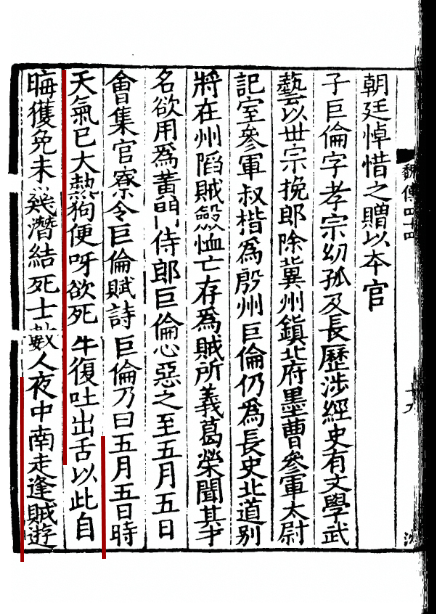 魏傳四十四
朝廷悼惜之贈以本官
子巨倫字孝宗幼孤及長歷涉經史有文學武
藝以世宗挽郎除冀州鎮北府墨曹參軍太尉
記室參軍叔楷為殷州巨倫仍為長史北道別
將在州陷賊歛恤亡存為賊所義葛榮聞其才
名欲用為黃門侍郎巨倫心惡之至五月五日
會集官寮令巨倫賦詩巨倫乃曰五月五日時
天氣已大熱狗便呀欲死牛復吐出舌以此自
晦獲免未幾潛結死士數人夜中南走逢賊遊